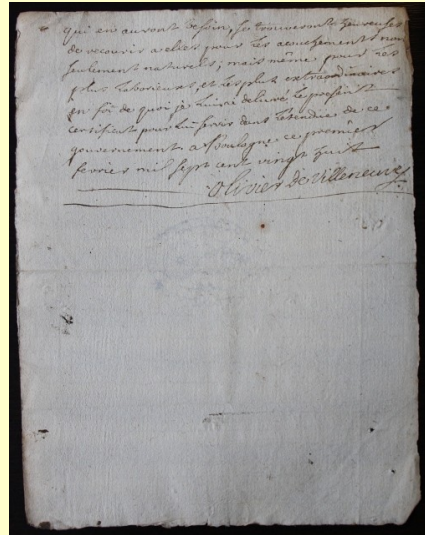 qui en auront besoin, se trouveront heureuses
de recourir a elles pour les acouchements non
seulement naturels; mais même pour les
plus laborieux, et les plus extraordinaires
en foi de quoi je lui ai delivré le present
certificat pour lui servir dans l'etendue de ce
gouvernement a Boulogne ce premier
fevrier mil sept cent vingt huit
Olivier de Villeneuve